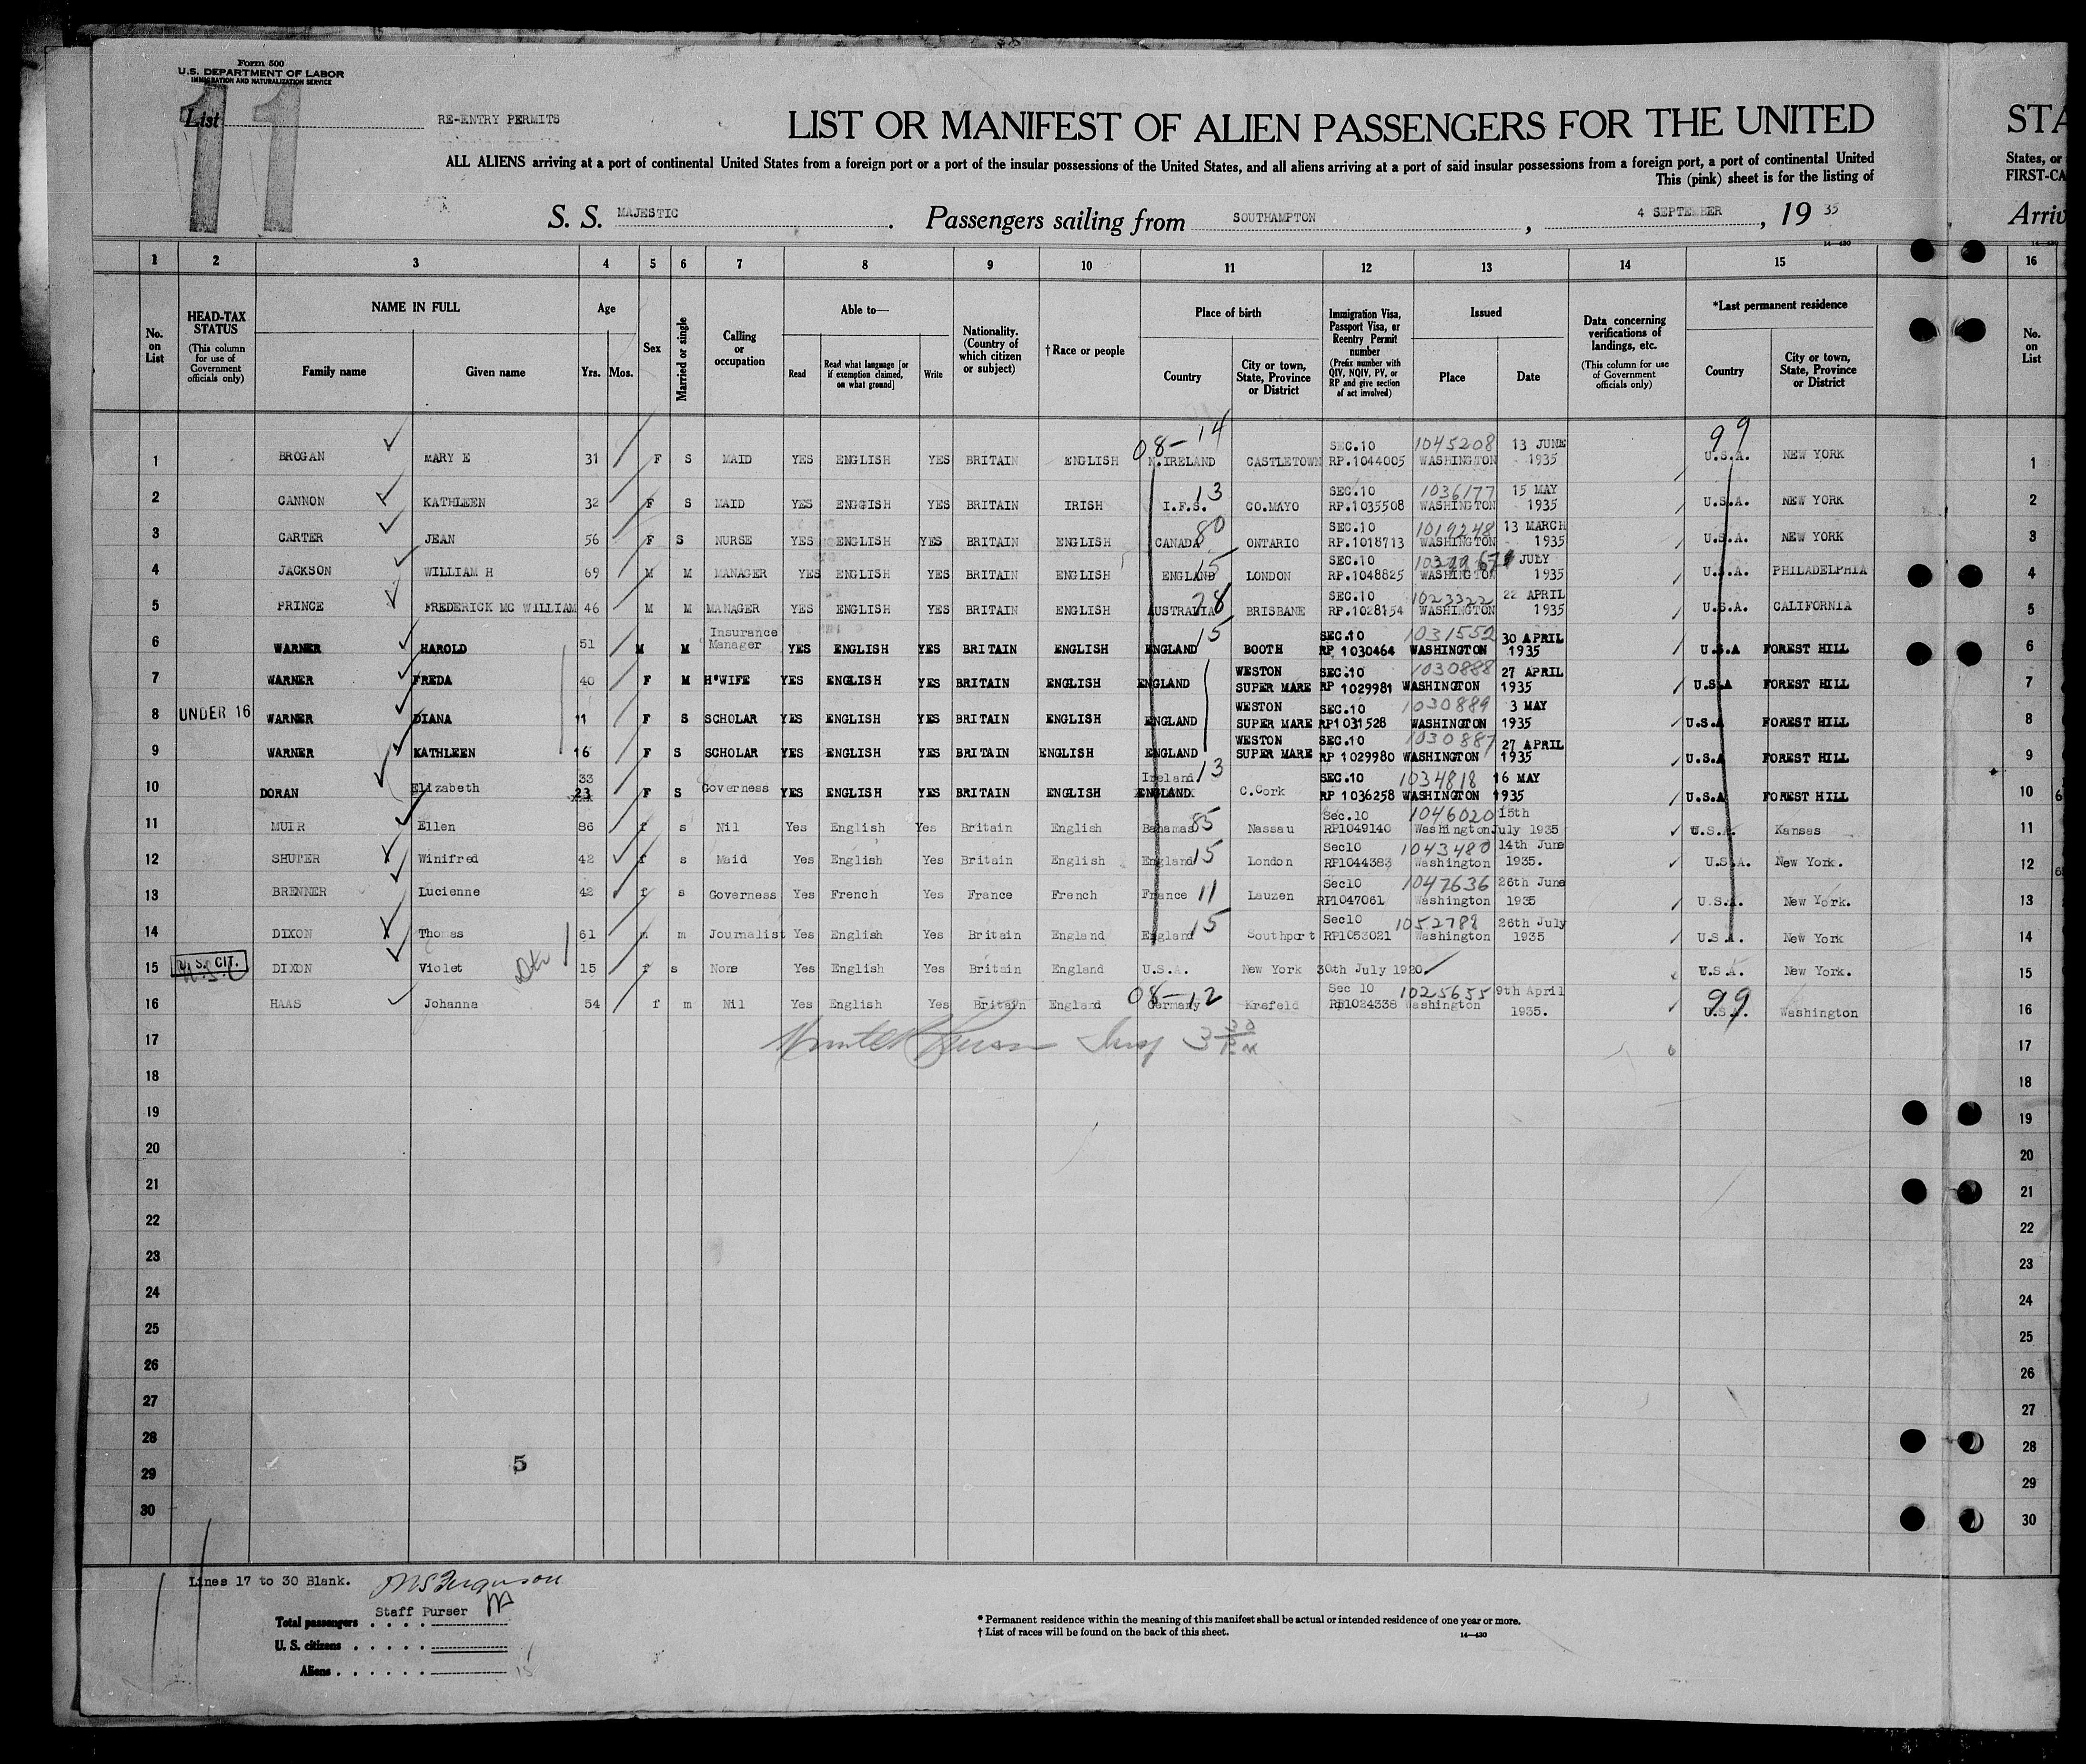 Form 500
U.S. DEPARTMENT OF LABOR
IMMIGRATION AND NATURALIZATION SERVICE
11
List
RE-ENTRY PERMITS
LIST OR MANIFEST OF ALIEN PASSENGERS FOR THE UNITED
STA
ALL ALIENS arriving at a port of continental United States from a foreign port or a port of the insular possessions of the United States, and all aliens arriving at a port of said insular possessions from a foreign port, a port of continental United
States, or
This (pink) sheet is for the listing of
FIRST-CA
S. S. MAJESTIC . Passengers sailing from SOUTHAMPTON , 4 SEPTEMBER , 19 35
Arriv
14-430
1 2 3 4 5 6 7 8 9 10 11 12 13 14 15 16
No. on List
HEAD-TAX STATUS (This column for use of Government officials only)
NAME IN FULL
Family name
Given name
Age
Yrs. Mos.
Sex
Married or single
Calling or occupation
Able to—
Read
Read what language [or if exemption claimed, on what ground]
Write
Nationality. (Country of which citizen or subject)
† Race or people
Place of birth
Country
City or town, State, Province or District
Immigration Visa, Passport Visa, or Reentry Permit number (Prefix number with QIV, NQIV, PV, or RP and give section of act involved)
Issued
Place
Date
Data concerning verifications of landings, etc. (This column for use of Government officials only)
*Last permanent residence
Country
City or town, State, Province or District
No. on List
08-14 99
1 BROGAN MARY E 31 F S MAID YES ENGLISH YES BRITAIN ENGLISH N.IRELAND CASTLETOWN SEC.10 RP.1044005 1045208 WASHINGTON 13 JUNE 1935 U.S.A. NEW YORK 1
2 CANNON KATHLEEN 32 F S MAID YES ENGGISH YES BRITAIN IRISH I.F.S. 13 CO.MAYO SEC.10 RP.1035508 1036177 WASHINGTON 15 MAY 1935 U.S.A. NEW YORK 2
3 CARTER JEAN 56 F S NURSE YES ENGLISH YES BRITAIN ENGLISH CANADA 80 ONTARIO SEC.10 RP.1018713 1019248 WASHINGTON 13 MARCH 1935 U.S.A. NEW YORK 3
4 JACKSON WILLIAM H 69 M M MANAGER YES ENGLISH YES BRITAIN ENGLISH ENGLAND 15 LONDON SEC.10 RP.1048825 WASHINGTON JULY 1935 U.S.A. PHILADELPHIA 4
5 PRINCE FREDERICK MC WILLIAM 46 M M MANAGER YES ENGLISH YES BRITAIN ENGLISH AUSTRALIA 28 BRISBANE SEC.10 RP.1028154 1023322 WASHINGTON 22 APRIL 1935 U.S.A. CALIFORNIA 5
6 WARNER HAROLD 51 M M Insurance Manager YES ENGLISH YES BRITAIN ENGLISH ENGLAND 15 BOOTH SEC.10 RP 1030464 1031552 WASHINGTON 30 APRIL 1935 U.S.A FOREST HILL 6
7 WARNER FREDA 40 F M H'WIFE YES ENGLISH YES BRITAIN ENGLISH ENGLAND WESTON SUPER MARE SEC.10 RP 1029981 1030888 WASHINGTON 27 APRIL 1935 U.S.A FOREST HILL 7
8 UNDER 16 WARNER DIANA 11 F S SCHOLAR YES ENGLISH YES BRITAIN ENGLISH ENGLAND WESTON SUPER MARE SEC.10 RP1031528 1030889 WASHINGTON 3 MAY 1935 U.S.A FOREST HILL 8
9 WARNER KATHLEEN 16 F S SCHOLAR YES ENGLISH YES BRITAIN ENGLISH ENGLAND WESTON SUPER MARE SEC.10 RP 1029980 1030887 WASHINGTON 27 APRIL 1935 U.S.A FOREST HILL 9
10 DORAN Elizabeth 33 23 F S Governess YES ENGLISH YES BRITAIN ENGLISH Ireland 13 ENGLAND C.Cork SEC.10 RP 1036258 1034818 WASHINGTON 16 MAY 1935 U.S.A FOREST HILL 10
11 MUIR Ellen 86 f s Nil Yes English Yes Britain English Bahamas 85 Nassau Sec.10 RP1049140 1046020 Washington 15th July 1935 U.S.A. Kansas 11
12 SHUTER Winifred 42 f s Maid Yes English Yes Britain English England 15 London Sec10 RP1044383 1043480 Washington 14th June 1935. U.S.A. New York. 12
13 BRENNER Lucienne 42 f s Governess Yes French Yes France French France 11 Lauzen Sec10 RP1047061 1047636 Washington 26th June 1935 U.S.A. New York. 13
14 DIXON Thomas 61 m m Journalist Yes English Yes Britain England England 15 Southport Sec10 RP1053021 1052788 Washington 26th July 1935 U.S.A. New York 14
15 U.S. CIT. DIXON Violet 15 f s None Yes English Yes Britain England U.S.A. New York 30th July 1920 U.S.A. New York. 15
16 HAAS Johanna 54 f m Nil Yes English Yes Britain England 08-12 Germany Krefeld Sec 10 RP1024338 1025655 Washington 9th April 1935. 99 U.S.A. Washington 16
17 17
18 18
19 19
20 20
21 21
22 22
23 23
24 24
25 25
26 26
27 27
28 28
5
29 29
30 30
Lines 17 to 30 Blank.
Staff Purser
Total passengers
U. S. citizens
Aliens
* Permanent residence within the meaning of this manifest shall be actual or intended residence of one year or more.
† List of races will be found on the back of this sheet.
14-430